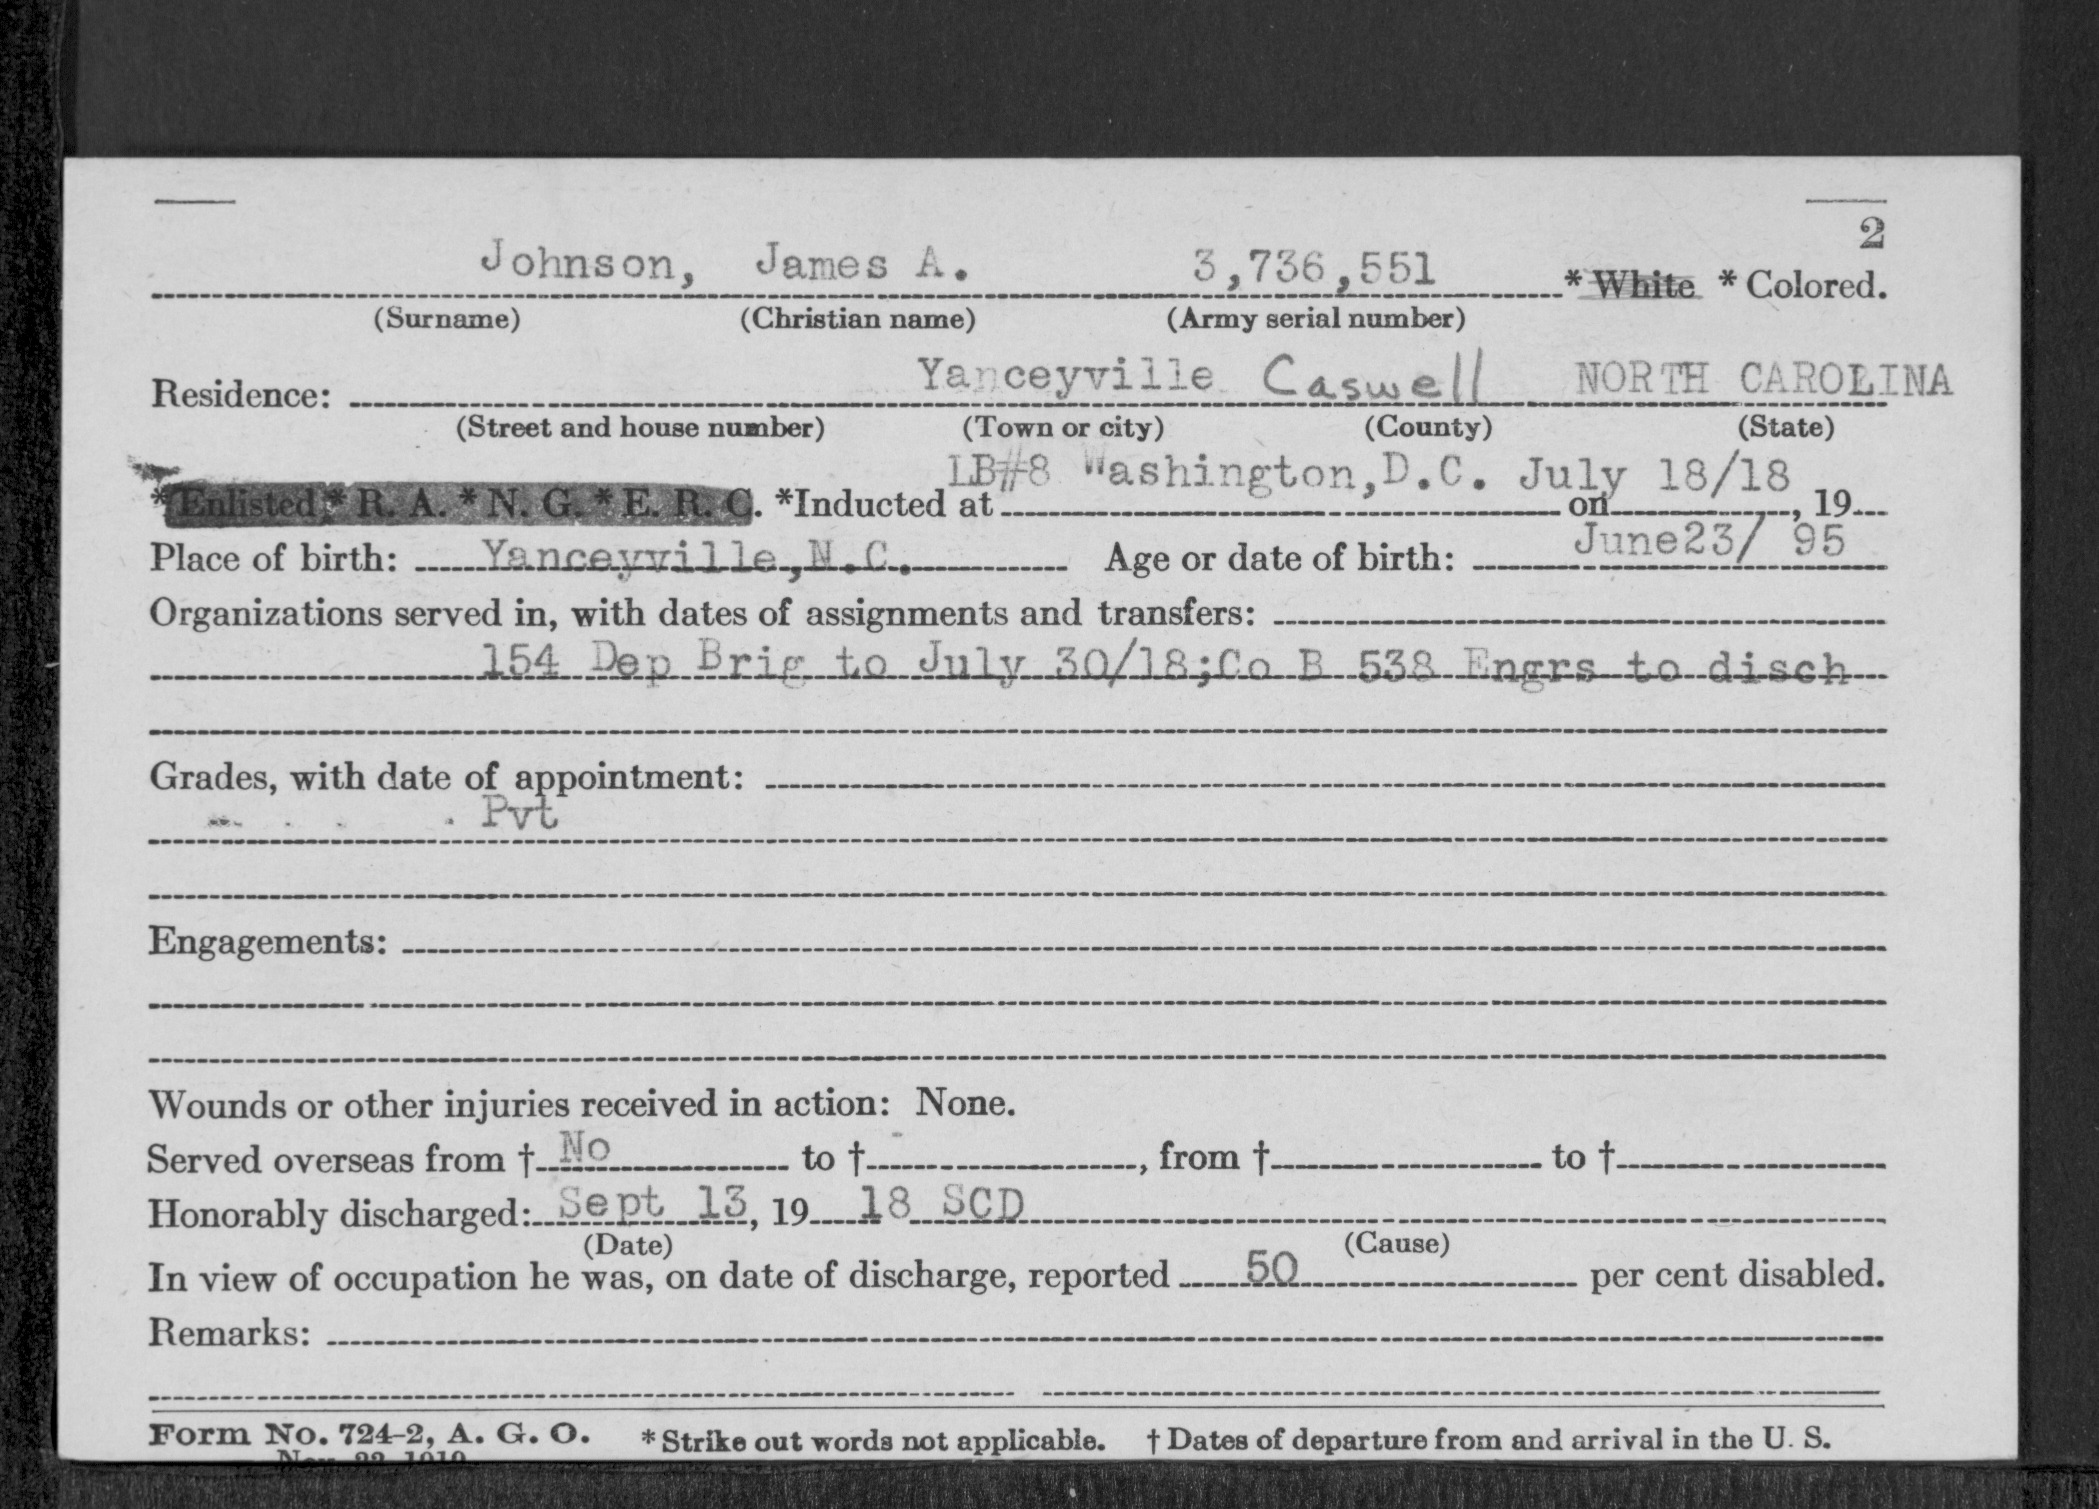 2
Johnson, James A. 3,736,551 * White * Colored.
(Surname) (Christian name) (Army serial number)
Residence: Yanceyville Caswell NORTH CAROLINA
(Street and house number) (Town or city) (County) (State)
LB#8 Washington,D.C. July 18/18
*Enlisted * R. A. * N. G. * E. R. C. *Inducted at on , 19
Place of birth: Yanceyville,N.C. Age or date of birth: June23/ 95
Organizations served in, with dates of assignments and transfers:
154 Dep Brig to July 30/18;Co B 538 Engrs to disch
Grades, with date of appointment:
Pvt
Engagements:
Wounds or other injuries received in action: None.
Served overseas from † No to † , from † to †
Honorably discharged: Sept 13, 19 18 SCD
(Date) (Cause)
In view of occupation he was, on date of discharge, reported 50 per cent disabled.
Remarks:
Form No. 724-2, A. G. O. * Strike out words not applicable. † Dates of departure from and arrival in the U. S.